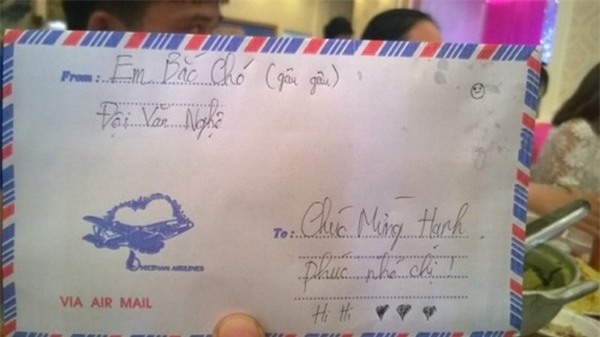 From: Em Bắc Chó (gâu gâu)
Đội Văn Nghệ
VIETNAM AIRLINES
To: Chúc Mừng Hạnh
phúc nhé chị!
VIA AIR MAIL
Hi Hi ♥ ♥ ♥